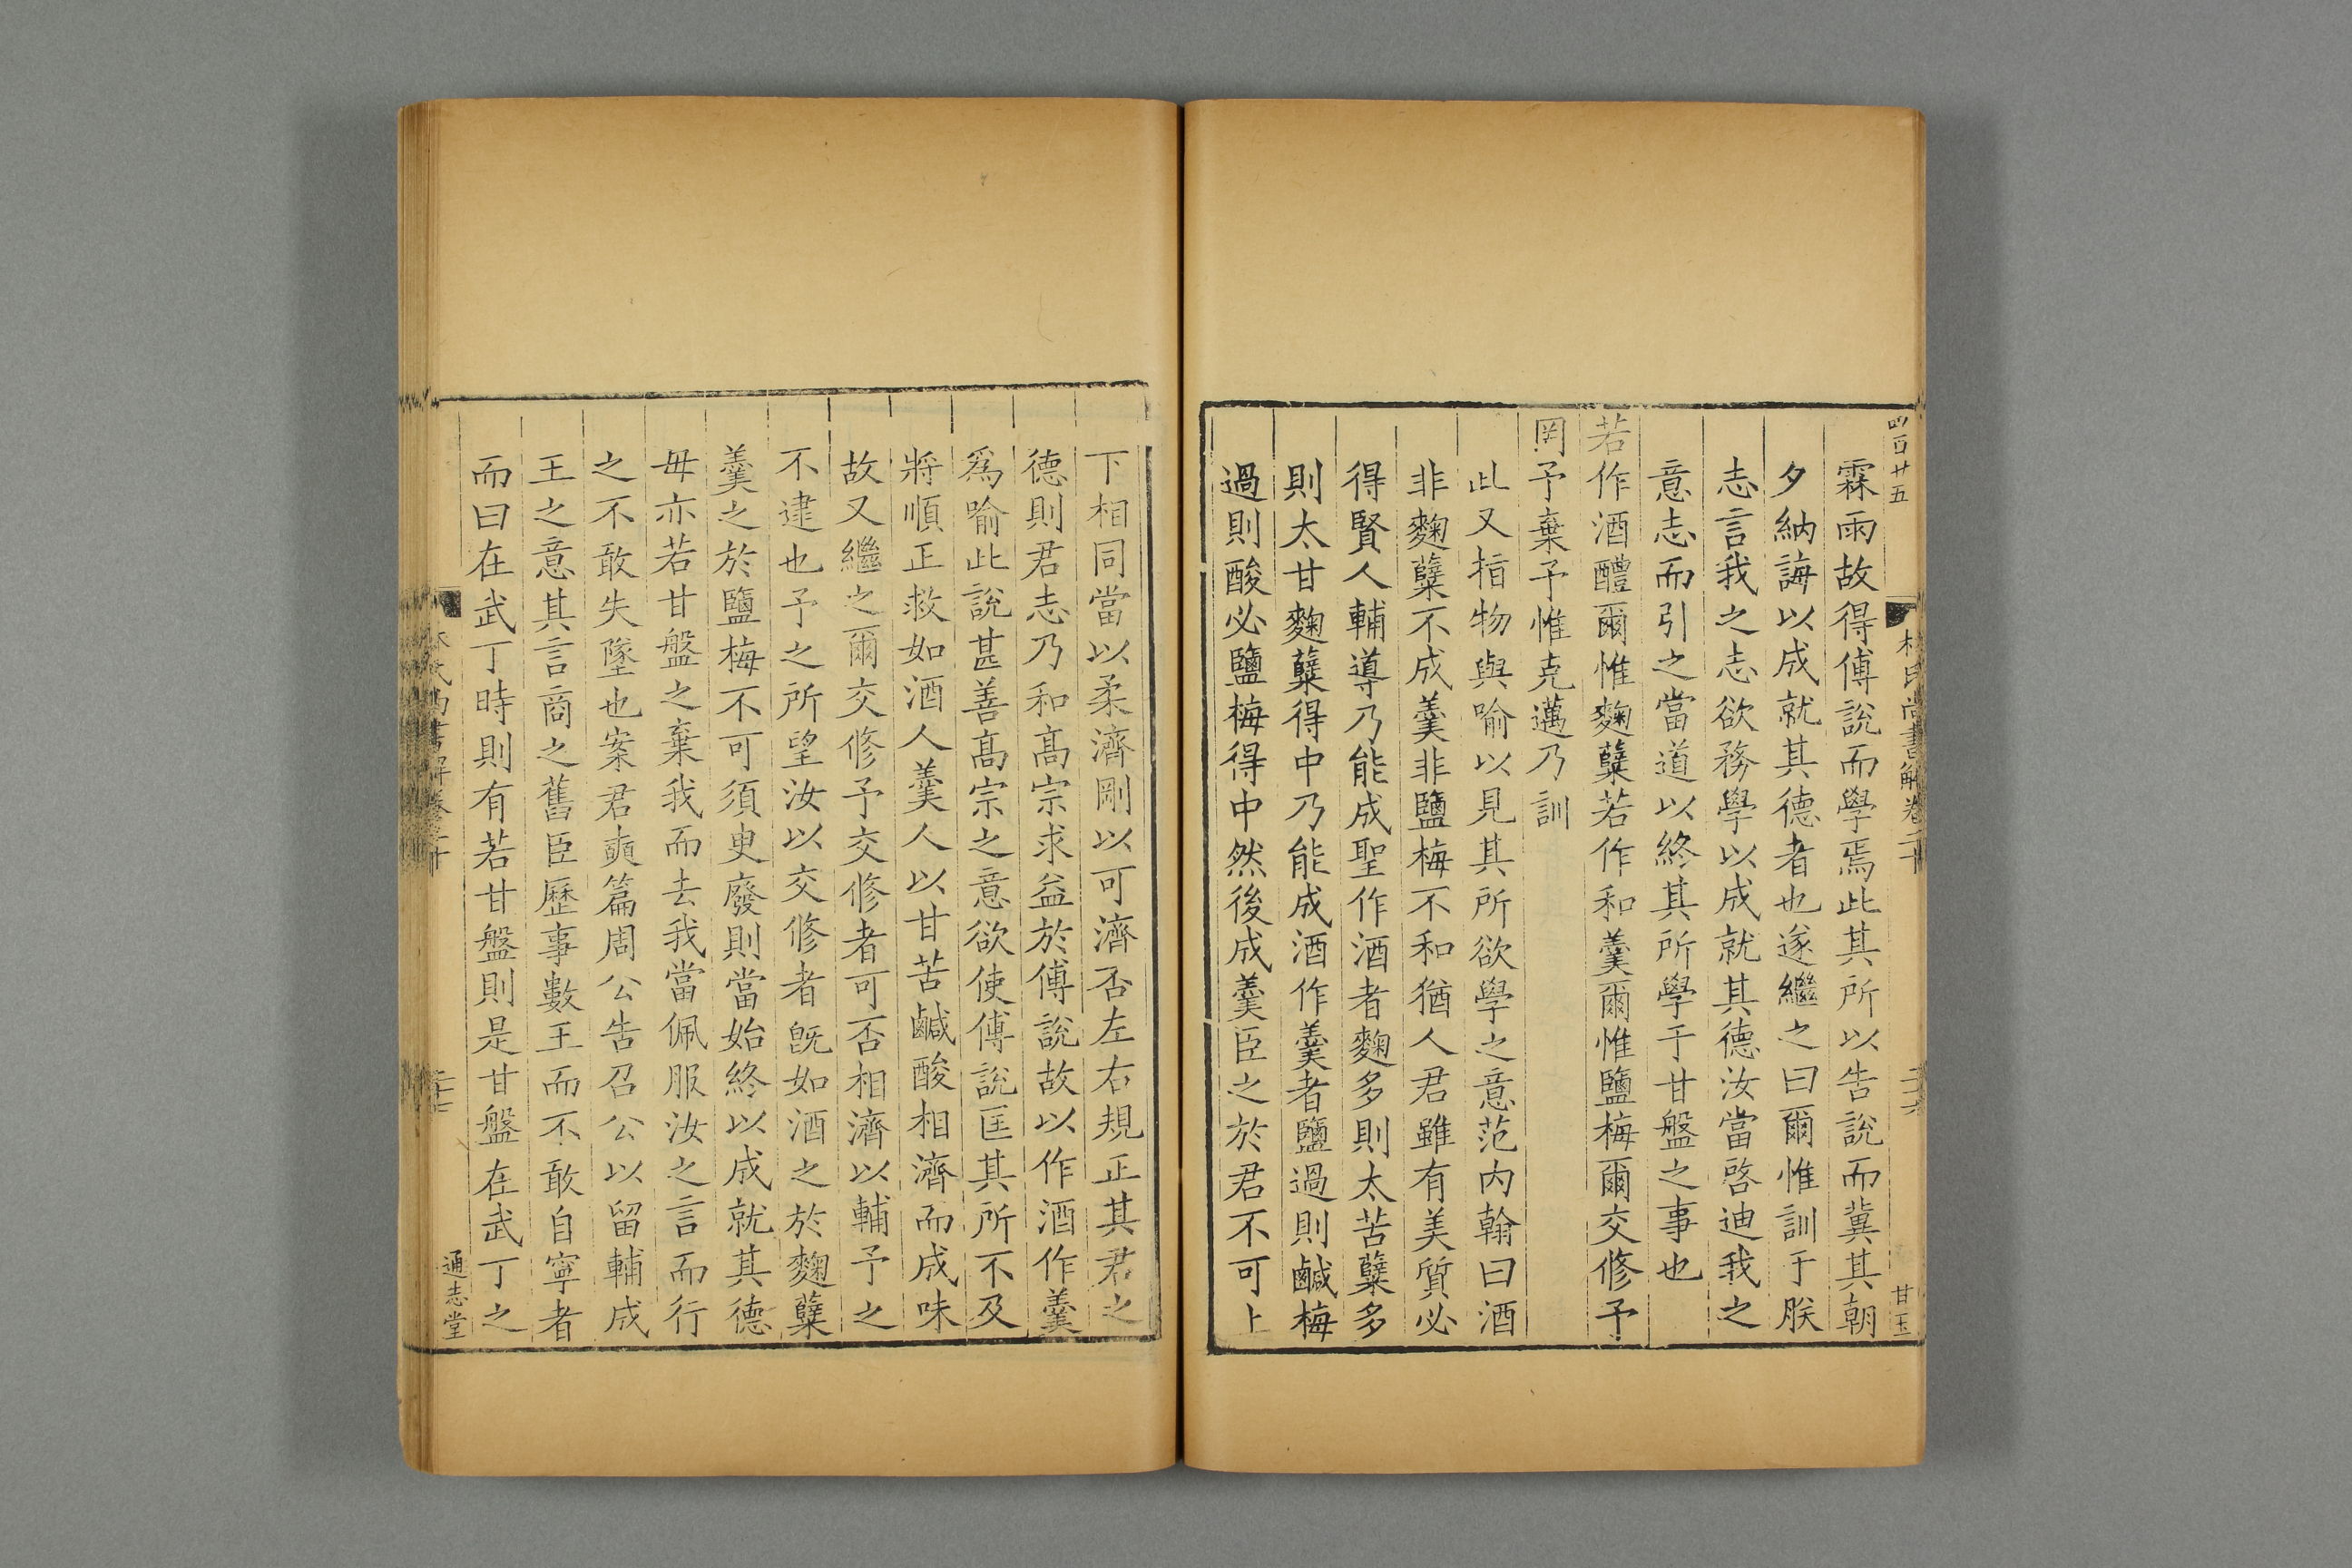 四百廿五
林氏尚書解卷二十
二十六
甘玉
霖雨故得傅說而學焉此其所以告說而冀其朝
夕納誨以成就其德者也遂繼之曰爾惟訓于朕
志言我之志欲務學以成就其德汝當啓迪我之
意志而引之當道以終其所學于甘盤之事也
若作酒醴爾惟麴糵若作和羹爾惟鹽梅爾交修予
罔予棄予惟克邁乃訓
此又指物與喻以見其所欲學之意范內翰曰酒
非麴糵不成羹非鹽梅不和猶人君雖有美質必
得賢人輔導乃能成聖作酒者麴多則太苦糵多
則太甘麴糵得中乃能成酒作羹者鹽過則鹹梅
過則酸必鹽梅得中然後成羹臣之於君不可上
下相同當以柔濟剛以可濟否左右規正其君之
德則君志乃和髙宗求益於傅說故以作酒作羹
爲喻此說甚善髙宗之意欲使傅說匡其所不及
將順正救如酒人羹人以甘苦鹹酸相濟而成味
故又繼之爾交修予交修者可否相濟以輔予之
不逮也予之所望汝以交修者旣如酒之於麴糵
羹之於鹽梅不可須臾廢則當始終以成就其德
毋亦若甘盤之棄我而去我當佩服汝之言而行
之不敢失墜也案君奭篇周公告召公以留輔成
王之意其言商之舊臣歷事數王而不敢自寧者
而曰在武丁時則有若甘盤則是甘盤在武丁之
林氏尚書解卷二十
通志堂